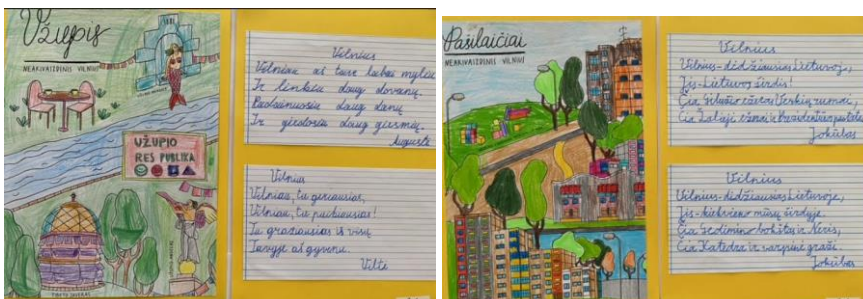 Užupis
NEAKIVAIZDINIS VILNIUS
UŽUPIO
RES PUBLIKA
Vilnius
Vilniau aš tave labai myliu
Ir linkiu daug dovanų.
Padainuosiu daug dainų
Ir giedosiu daug giesmių.
Augustė
Vilnius
Vilniau, tu geriausias,
Vilniau, tu puikiausias!
Tu gražiausias iš visų
Tavyje aš gyvenu.
Viltė
Pašilaičiai
NEAKIVAIZDINIS VILNIUS
Vilnius
Vilnius-didžiausias Lietuvoje,
Jis-Lietuvos širdis!
Čia žaliasis Verkių rumai,
Čia Žalieji ežerai ir Prezidento
Jokūbas
Vilnius
Vilnius-didžiausias Lietuvoje,
Jis-kiekvieno mūsų širdyje.
Čia Gedimino bokštas ir Neris,
Čia Katedra ir varpinė graži.
Jokūbas